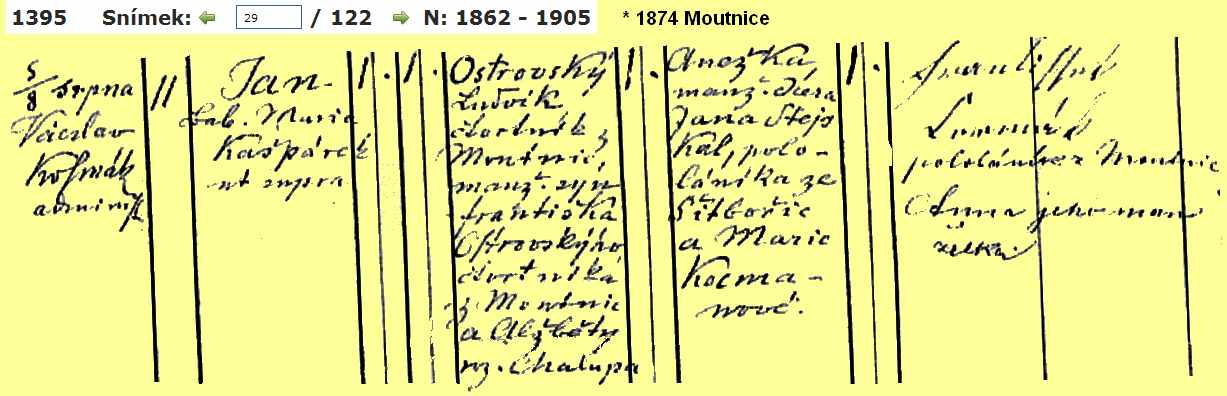 1395 Snímek: 29 / 122 N: 1862 - 1905 * 1874 Moutnice
5/8 srpna
Václav
administ
11
Jan
bab. Marie
Kašpárek
ut supra
1. 1.
Ostrovský
Ludvík
čtvrtník z
Moutnic,
manž. syn
Františka
Ostrovskýho
čtvrtníka
z Moutnic
a Alžběty
roz. Chalupa
1.
Anežka
manž. dcera
Jana Stejs
kal, polo-
láníka ze
Šitbořic
a Marie
Kocma-
nové.
1.
František
pololáník z Moutnic
Anna jeho man
želka